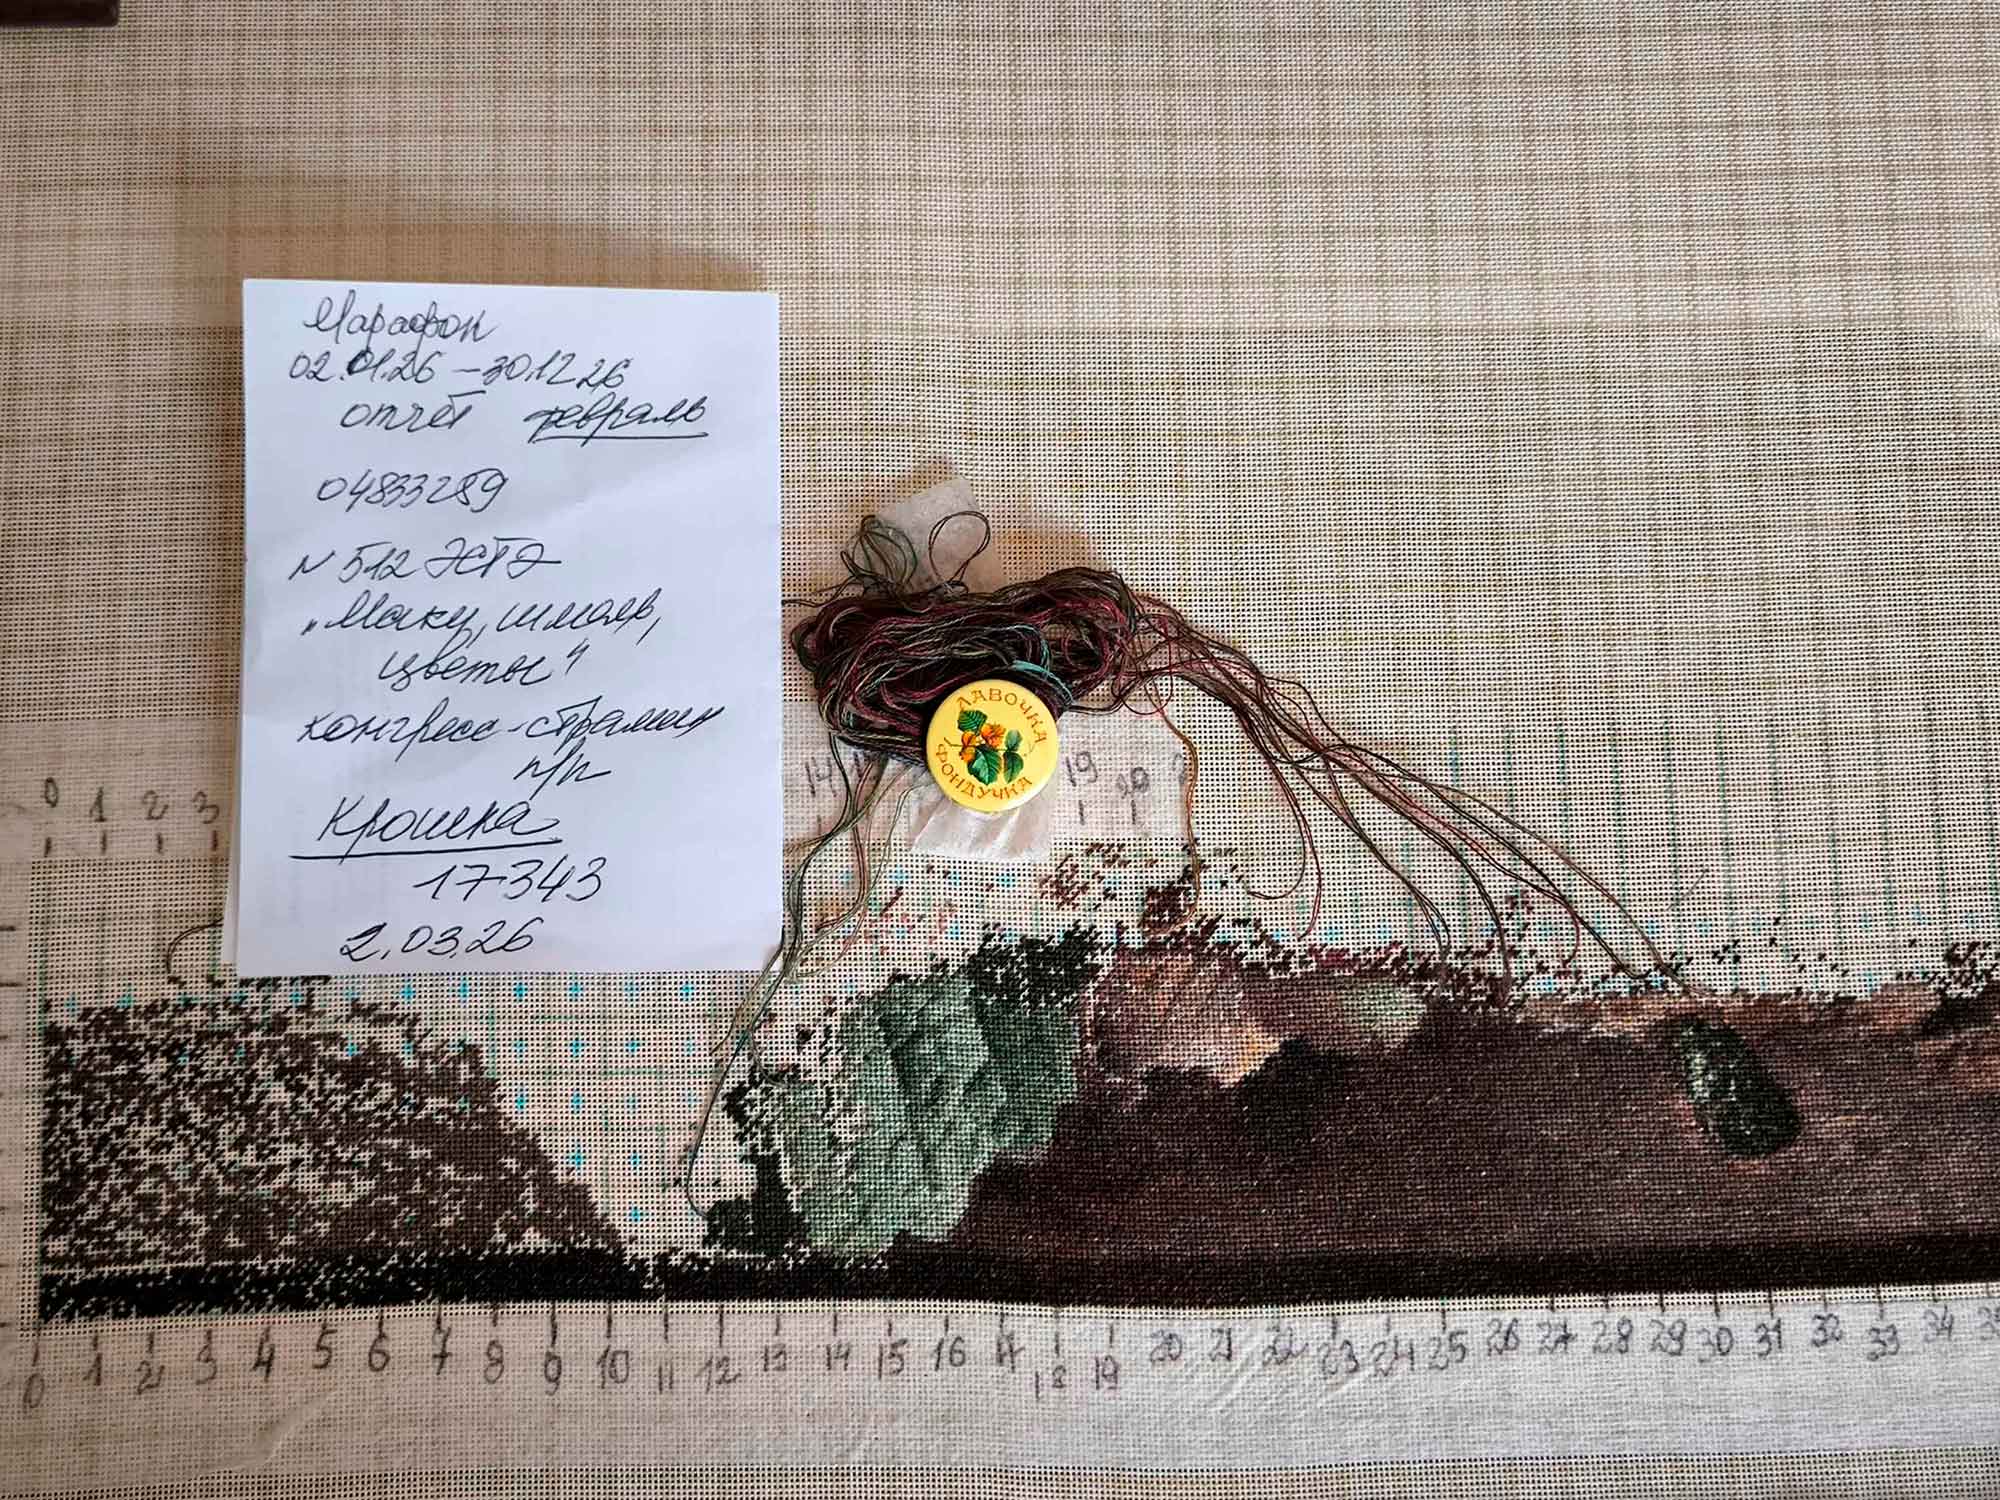 Марафон
02.01.26 – 30.12.26
отчёт февраль
04833289
N 512 ЭСТЭ
„Маки, шмель,
цветы"
конгресс-страмин
п/п
Крошка
17343
2.03.26
ЛАВОЧКА
ФОНДУЧКА
0 1 2 3 14 19 20
0 1 2 3 4 5 6 7 8 9 10 11 12 13 14 15 16 17 18 19 20 21 22 23 24 25 26 27 28 29 30 31 32 33 34 35